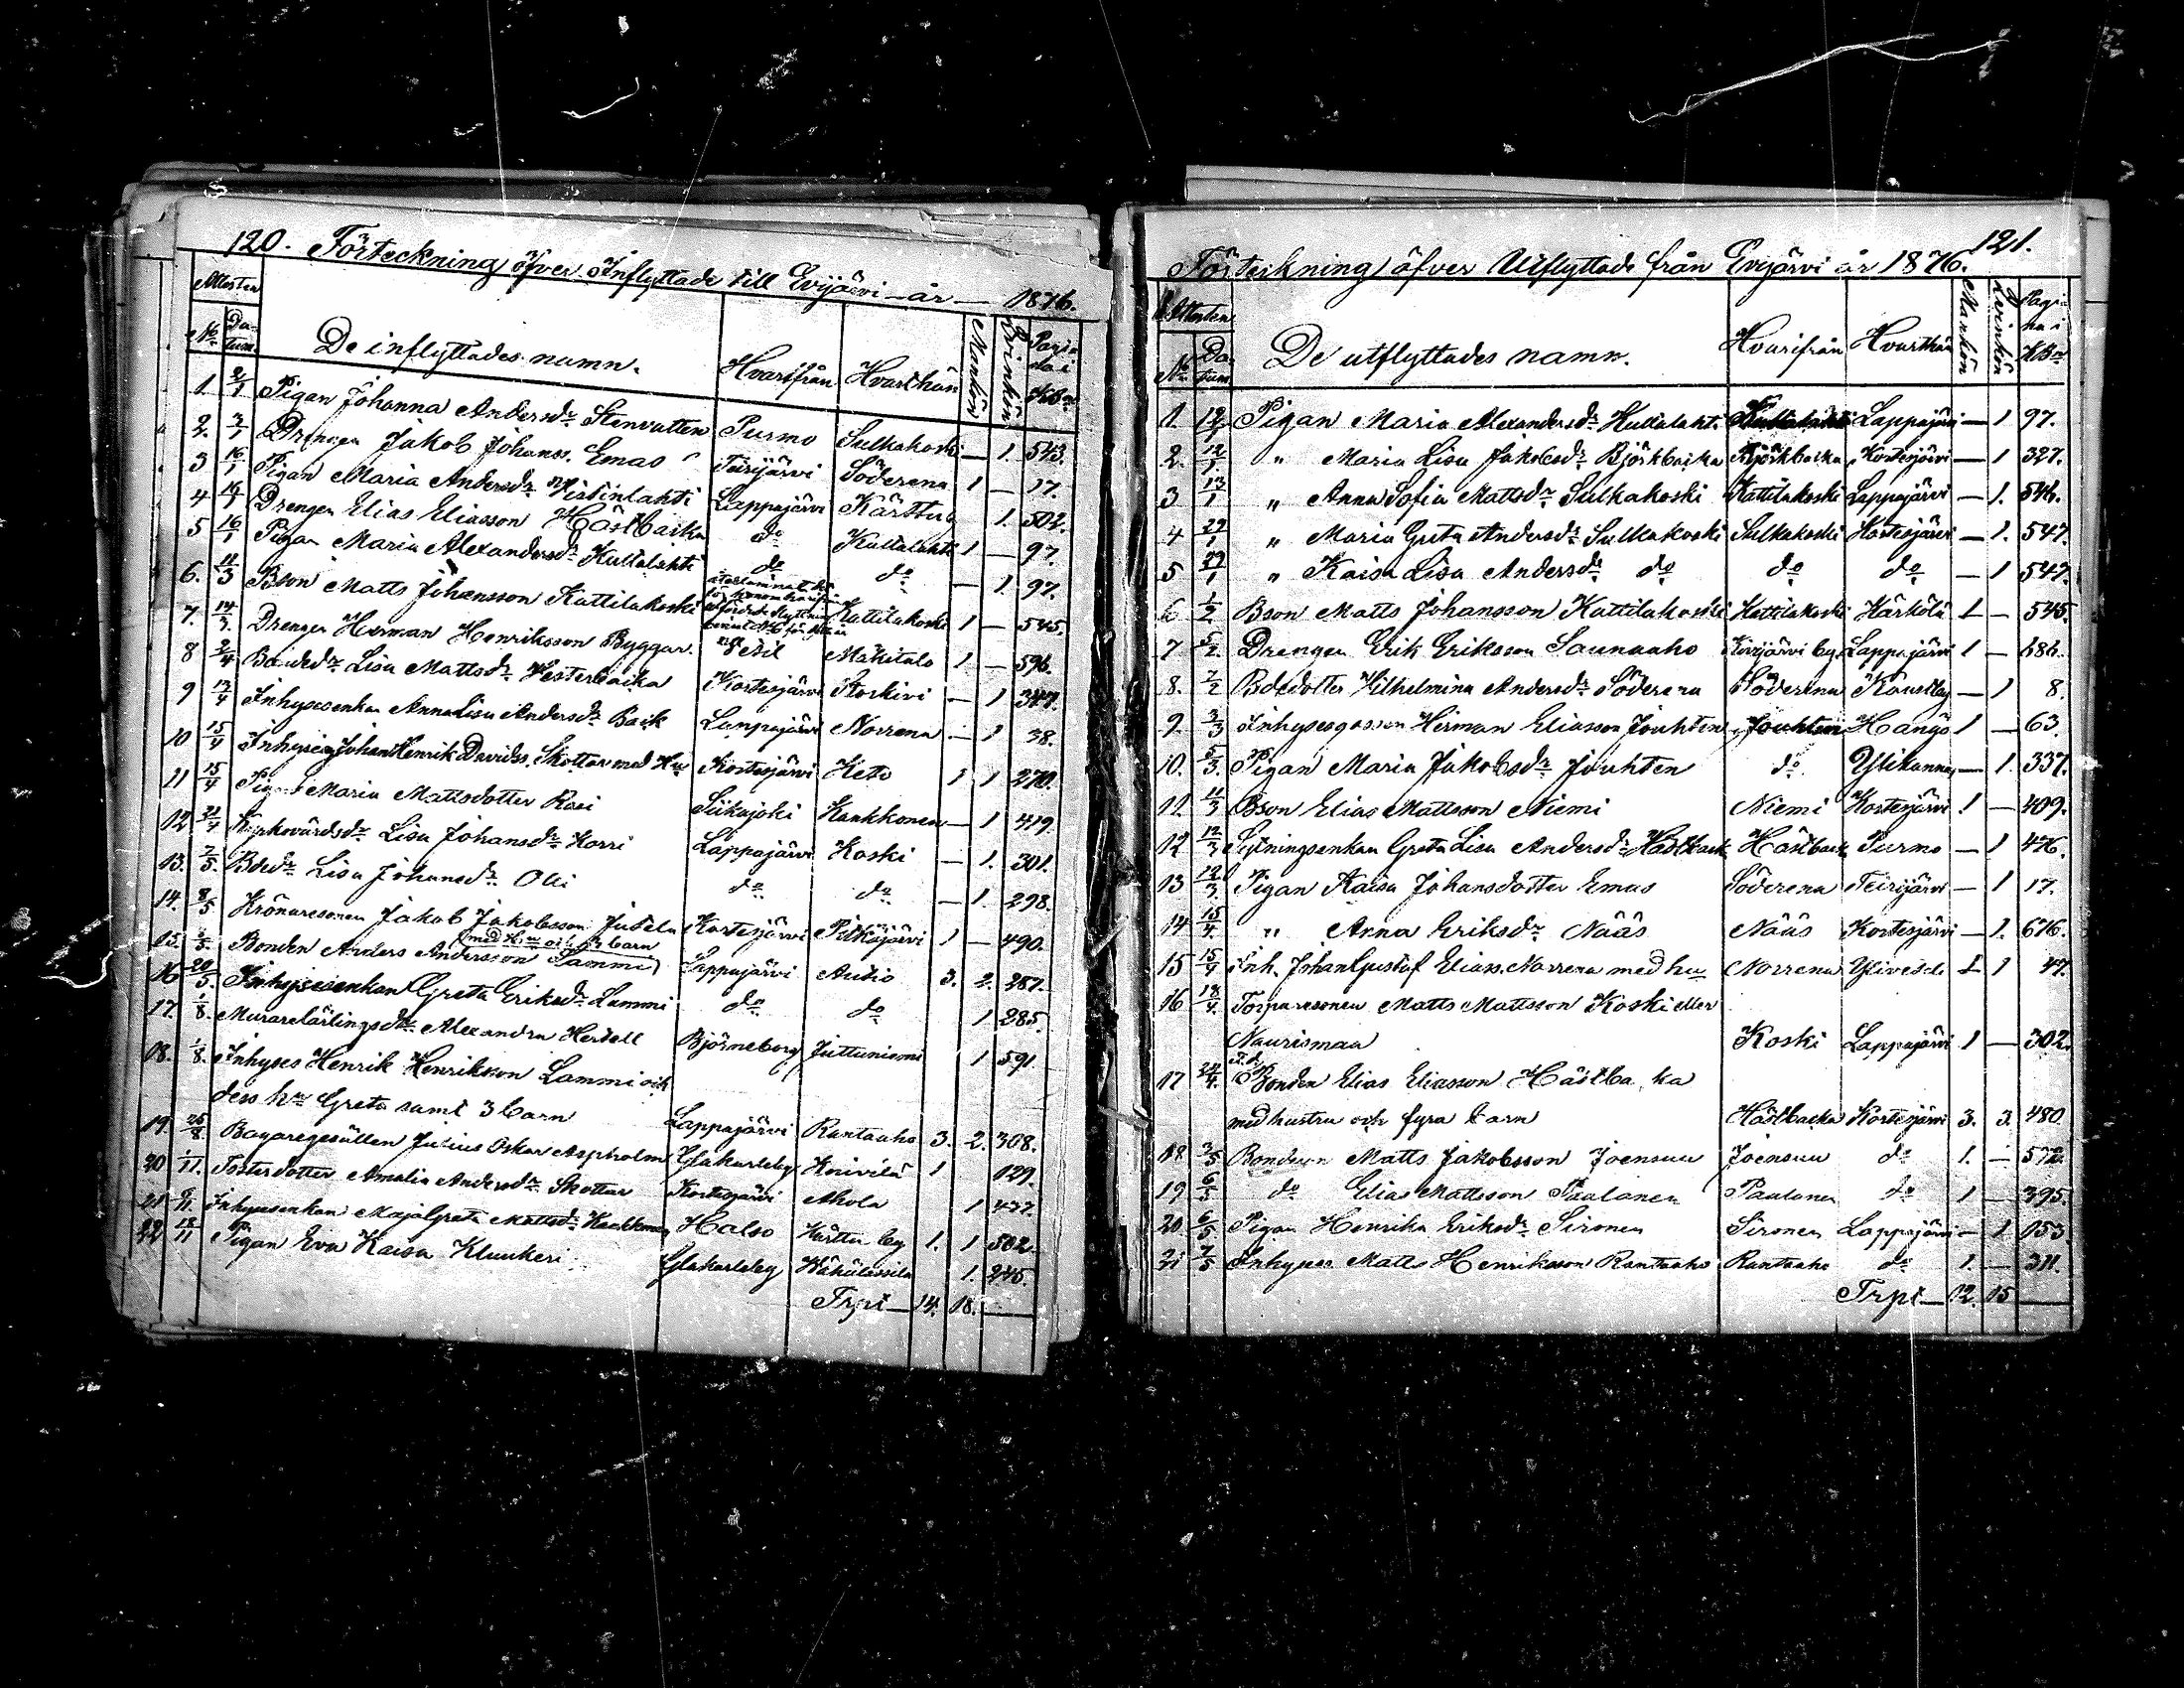 120. Förteckning öfver Inflyttade till Evijärvi år 1876.
Attesten
No Datum. De inflyttades namn. Hvarifrån Hvarthän Mankön Qvinkön Pagina i KBn
1. 2/1 Pigan Johanna Andersdr Stenvatten Purmo Sulkakoski — 1. 543.
2. 3/1 Drengen Jakob Johanss. Emas Teirijärvi Söderena 1 — 17.
3 16/1 Pigan Maria Andersdr Lappajärvi Kärttu 1. 502.
4 Drengen Elias Eliasson Hästbacka do Kultalahti 1 — 97.
5 16/1 Pigan Maria Alexandersdr Kultalahti do do — 1. 97.
6. 11/3 Bson Matts Johansson Kattilakoski Kattilakoski 1 — 545.
7. 14/3 Drengen Herman Henriksson Byggar. Mäkitalo 1 — 596.
8 3/4 Bondedr Lisa Mattsdr Vesterbacka Kortesjärvi Storkivi — 1 347.
9 13/4 Inhysesenkan Anna Lisa Andersdr Back Lappajärvi Norrena — 1 38.
10 15/4 Inhysing Johan Henrik Davidss. Skottar med Hu Kortesjärvi Keto 1 1 270.
11 15/4 Pigan Maria Mattsdotter Rasi Siikajoki Kaukkonen — 1 419.
12 21/4 Kyrkovärdsdr Lisa Johansdr Korri Lappajärvi Koski — 1. 301.
13. 7/5 Bdedr Lisa Johansdr Olli do do — 1. 298.
14. 8/5 Krönaresonen Jakob Jakobsson Jutela Kortesjärvi Pitkäjärvi 1 — 490.
med Hu och 3 barn
15. Bonden Anders Andersson Lammi Lappajärvi Autio 3. 2. 287.
16 20/5 Inhysesenkan Greta Eriksdr Lammi do do 1 285.
17. 1/8. Murarelärlingsdr Alexandra Hertell Björneborg Juttuniemi 1 591.
18. 1/8. Inhyses Henrik Henriksson Lammi och
dess hu Greta samt 3 barn Lappajärvi Rantaaho 3. 2. 308.
19. 25/8. Bagaregesällen Julius Oskar Aspholm Glakarleby Knivilä 1 129.
20 1/11. Fosterdotter Amalia Andersdr Skottar Kortesjärvi Ahola 1 477.
21 9/11 Inhysesenkan Maja Greta Mattsdr Kaukkonen Halso Kärttu by 1. 1 502.
22 18/11 Pigan Eva Kaisa Kluukeri Glakarleby Wähälassila 1. 245.
Trpt — 14. 18. —
121.
Förteckning öfver Utflyttade från Evijärvi år 1876.
Attesten
No Datum De utflyttades namn. Hvarifrån Hvarthän Mankön Qvinkön Pagina i KBn
1. 12/1 Pigan Maria Alexandersdr Kultalahti Kultalahti Lappajärvi — 1 97.
2. 12/1. " Maria Lisa Jakobsdr Björkbacka Björkbacka Kortesjärvi — 1 327.
3 13/1 " Anna Sofia Mattsdr Sulkakoski Kattilakoski Lappajärvi — 1. 546.
4 29/1 " Maria Greta Andersdr Sulkakoski Sulkakoski Kortesjärvi — 1. 547.
5 29/1 " Kaisa Lisa Andersdr do do do — 1 547.
6 1/2 Bson Matts Johansson Kattilakoski Kattilakoski Kärkölä 1 — 545.
7 5/2. Drengen Erik Eriksson Saunaaho Kivijärvi by Lappajärvi 1 — 686.
8. 7/2 Bdedotter Vilhelmina Andersdr Söderena Söderena Kaustby — 1 8.
9. 3/3 Inhysesgossen Herman Eliasson Jouhten Jouhten Hangö 1 — 63.
10. 5/3. Pigan Maria Jakobsdr Jouhten do. Ylikannus — 1. 337.
11. 11/3 Bson Elias Mattsson Niemi Niemi Kortesjärvi 1 — 409.
12 12/3 Sytningsenkan Greta Lisa Andersdr Hästback Hästback Purmo — 1 476.
13 12/3 Pigan Kaisa Johansdotter Emas Söderena Teirijärvi — 1 17.
14 15/4 " Anna Eriksdr Nääs Nääs Kortesjärvi — 1. 676.
15 15/4 Inh. Johan Gustaf Eliass. Norrena med hu Norrena Ylivesli 1 1 47.
16 18/4. Torparesonen Matts Mattsson Koski eller
Naurismaa Koski Lappajärvi 1 — 302.
17 24/4. F.d. Bonden Elias Eliasson Hästbacka
med hustru och fyra barn Hästbacka Kortesjärvi 3. 3. 480.
18 3/5 Bondesn Matts Jakobsson Joensuu Joensuu do 1. — 572.
19 6/5 do Elias Mattsson Paalanen Paalanen do 1 — 395.
20. 6/5 Pigan Henrika Eriksdr Sironen Sironen Lappajärvi — 1 153
21 7/5 Inhyses Matts Henriksson Rantaaho Rantaaho do 1. — 311.
Trpt — 12. 15